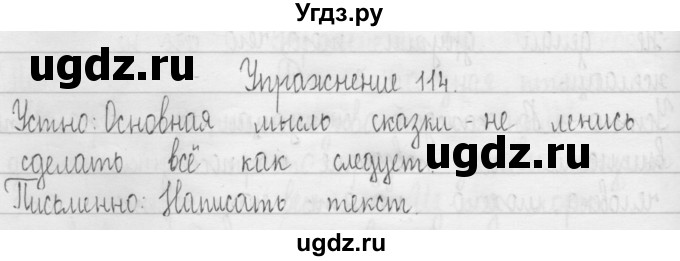 Угдз.ру
ugdz.ru
Упражнение 114.
Устно: Основная мысль сказки - не ленись
сделать всё как следует.
ugdz.ru
Письменно: Написать текст.
ugdz.ru